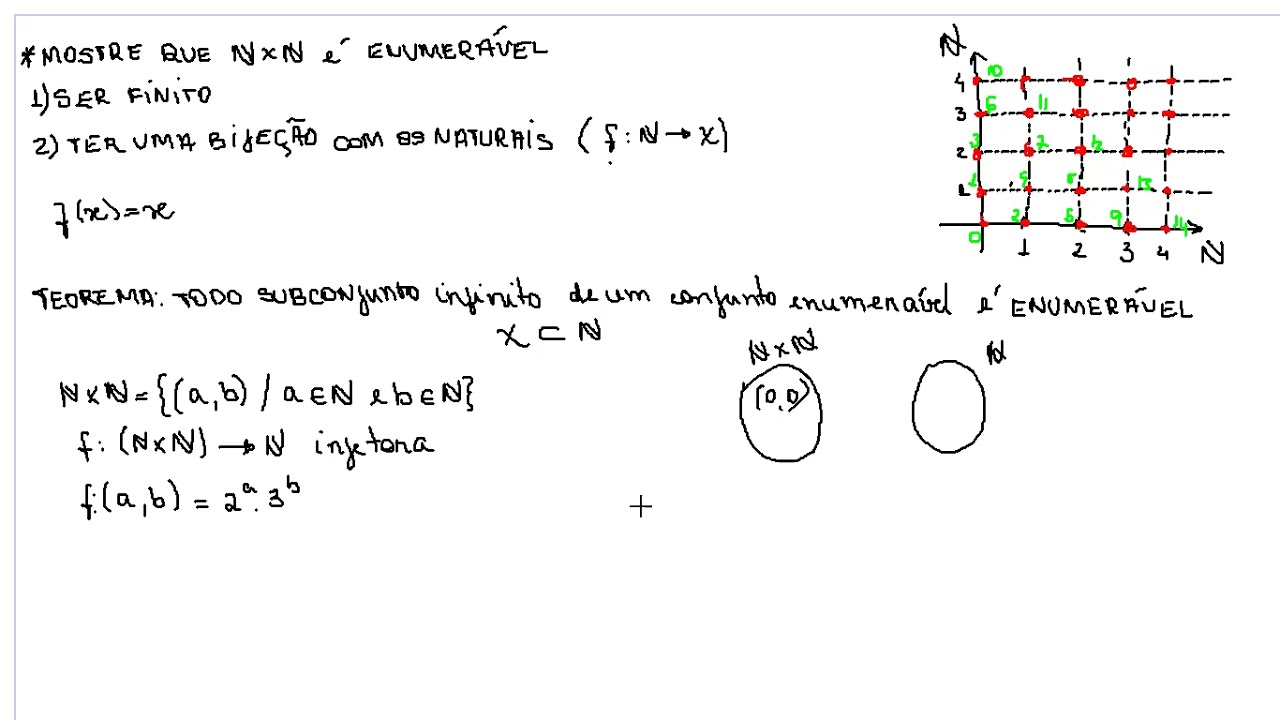 *MOSTRE QUE ℕ×ℕ é ENUMERÁVEL
1) SER FINITO
2) TER UMA BIJEÇÃO COM OS NATURAIS (f: ℕ → X)
f(x)=x
ℕ
4 10
3 6 11
2 3 7 12
1 1 4 8 13
0 2 5 9 14
1 2 3 4 ℕ
TEOREMA: TODO SUBCONJUNTO infinito de um conjunto enumerável é ENUMERÁVEL
X ⊂ ℕ
ℕ×ℕ ℕ
ℕ×ℕ = {(a,b) / a∈ℕ e b∈ℕ}
(0,0)
f: (ℕ×ℕ) → ℕ injetora
f:(a,b) = 2ᵃ.3ᵇ